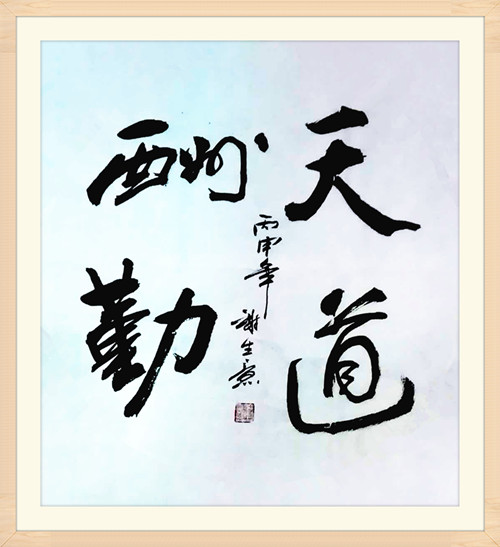 天道
酬勤
丙申年
謝生